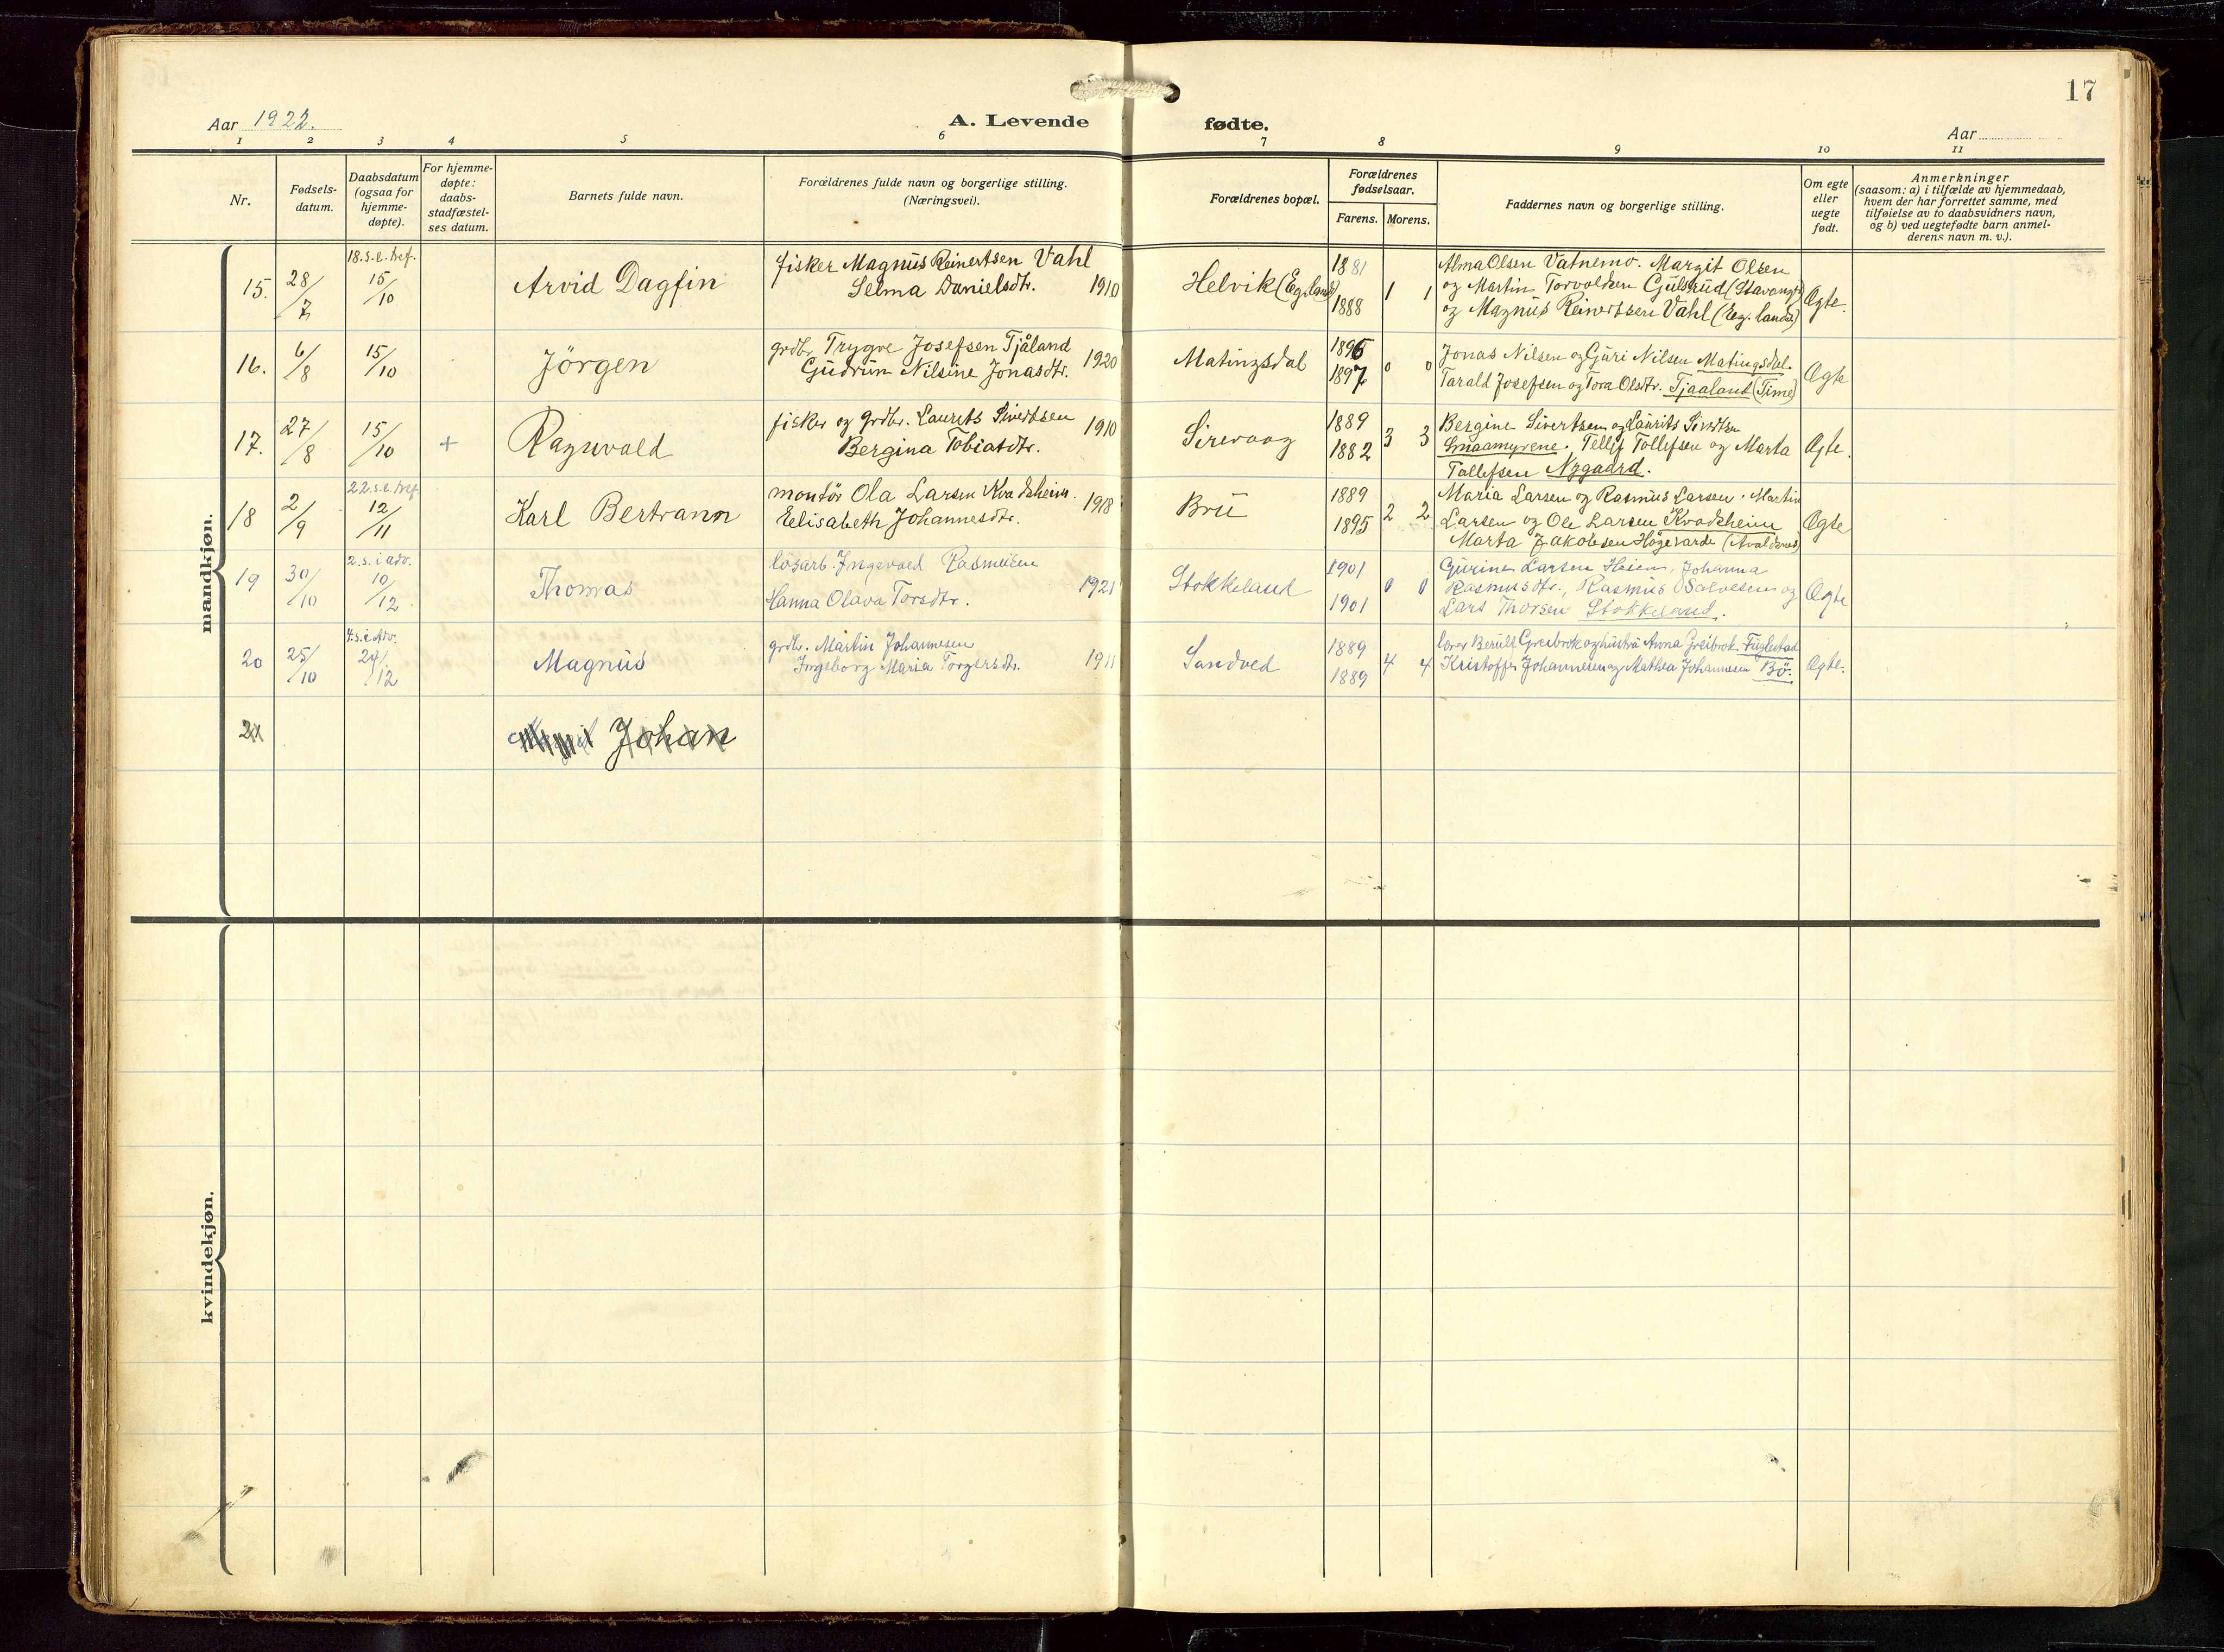 17
Aar 1922.
A. Levende fødte.
Aar
1 2 3 4 5 6 7 8 9 10 11
Nr.
Fødsels-
datum.
Daabsdatum
(ogsaa for
hjemme-
døpte).
For hjemme-
døpte:
daabs-
stadfæstel-
ses datum.
Barnets fulde navn.
Forældrenes fulde navn og borgerlige stilling.
(Næringsvei).
Forældrenes bopæl.
Forældrenes
fødselsaar.
Farens. Morens.
Faddernes navn og borgerlige stilling.
Om egte
eller
uegte
født.
Anmerkninger
(saasom: a) i tilfælde av hjemmedaab,
hvem der har forrettet samme, med
tilføielse av to daabsvidners navn,
og b) ved uegtefødte barn anmel-
derens navn m. v.).
mandkjøn.
15. 28/7
18. s. e. tref.
15/10
Arvid Dagfin
fisker Magnus Reinertsen Vahl
Selma Danielsdtr. 1910
Helvik (Eg.land)
1881
1888
1 1
Alma Olsen Vatnemo. Margit Olsen
og Martin Torvaldsen Gulsrud (Stavanger)
og Magnus Reinertsen Vahl (Eg. land)
Ægte.
16. 6/8
15/10
Jörgen
grdbr. Trygve Josefsen Tjåland
Gudrun Nilsine Jonasdtr. 1920
Matingsdal
1896
1897
0 0
Jonas Nilsen og Guri Nilsen Matingsdal.
Tarald Josefsen og Tora Olsdtr. Tjaaland (Time)
Ægte
17. 27/8
15/10
+
Ragnvald
fisker og grdbr. Laurits Sivertsen
Bergina Tobiasdtr. 1910
Sirevaag
1889
1882
3 3
Bergine Sivertsen og Laurits Sivertsen
Smaamyrene. Tellef Tollefsen og Marta
Tollefsen Nygaard.
Ægte.
18 2/9
22. s. e. tref.
12/11
Karl Bertrann
montör Ola Larsen Kvadsheim.
Elisabeth Johannesdtr. 1918
Bru
1889
1895
2 2
Maria Larsen og Rasmus Larsen. Martin
Larsen og Ole Larsen Kvadsheim
Marta Jakobsen Högevarde (Avaldsnes)
Ægte
19 30/10
2. s. i adv.
10/12
Thomas
lösarb. Ingevald Rasmusen
Hanna Olava Torsdtr. 1921
Stokkeland
1901
1901
0 0
Gurine Larsen Heien, Johanna
Rasmusdtr., Rasmus Salvesen og
Lars Thorsen Stokkeland.
Ægte
20 25/10
4. s. i Adv.
24/12
Magnus
grdbr. Martin Johannesen
Ingeborg Maria Torgersdtr. 1911
Sandved
1889
1889
4 4
lærer Berulf Greibrok og hustru Anna Greibrok Fuglestad
Kristoffer Johannesen og Mathea Johannesen Bö.
Ægte.
21
Johan
kvindekjøn.